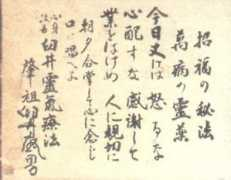 招福の秘法
萬病の靈薬
今日丈けは 怒るな
心配すな 感謝して
業をはげめ 人に親切に
朝夕合掌して心に念じ
口に唱へよ
心身改善 臼井靈氣療法
肇祖 臼井甕男